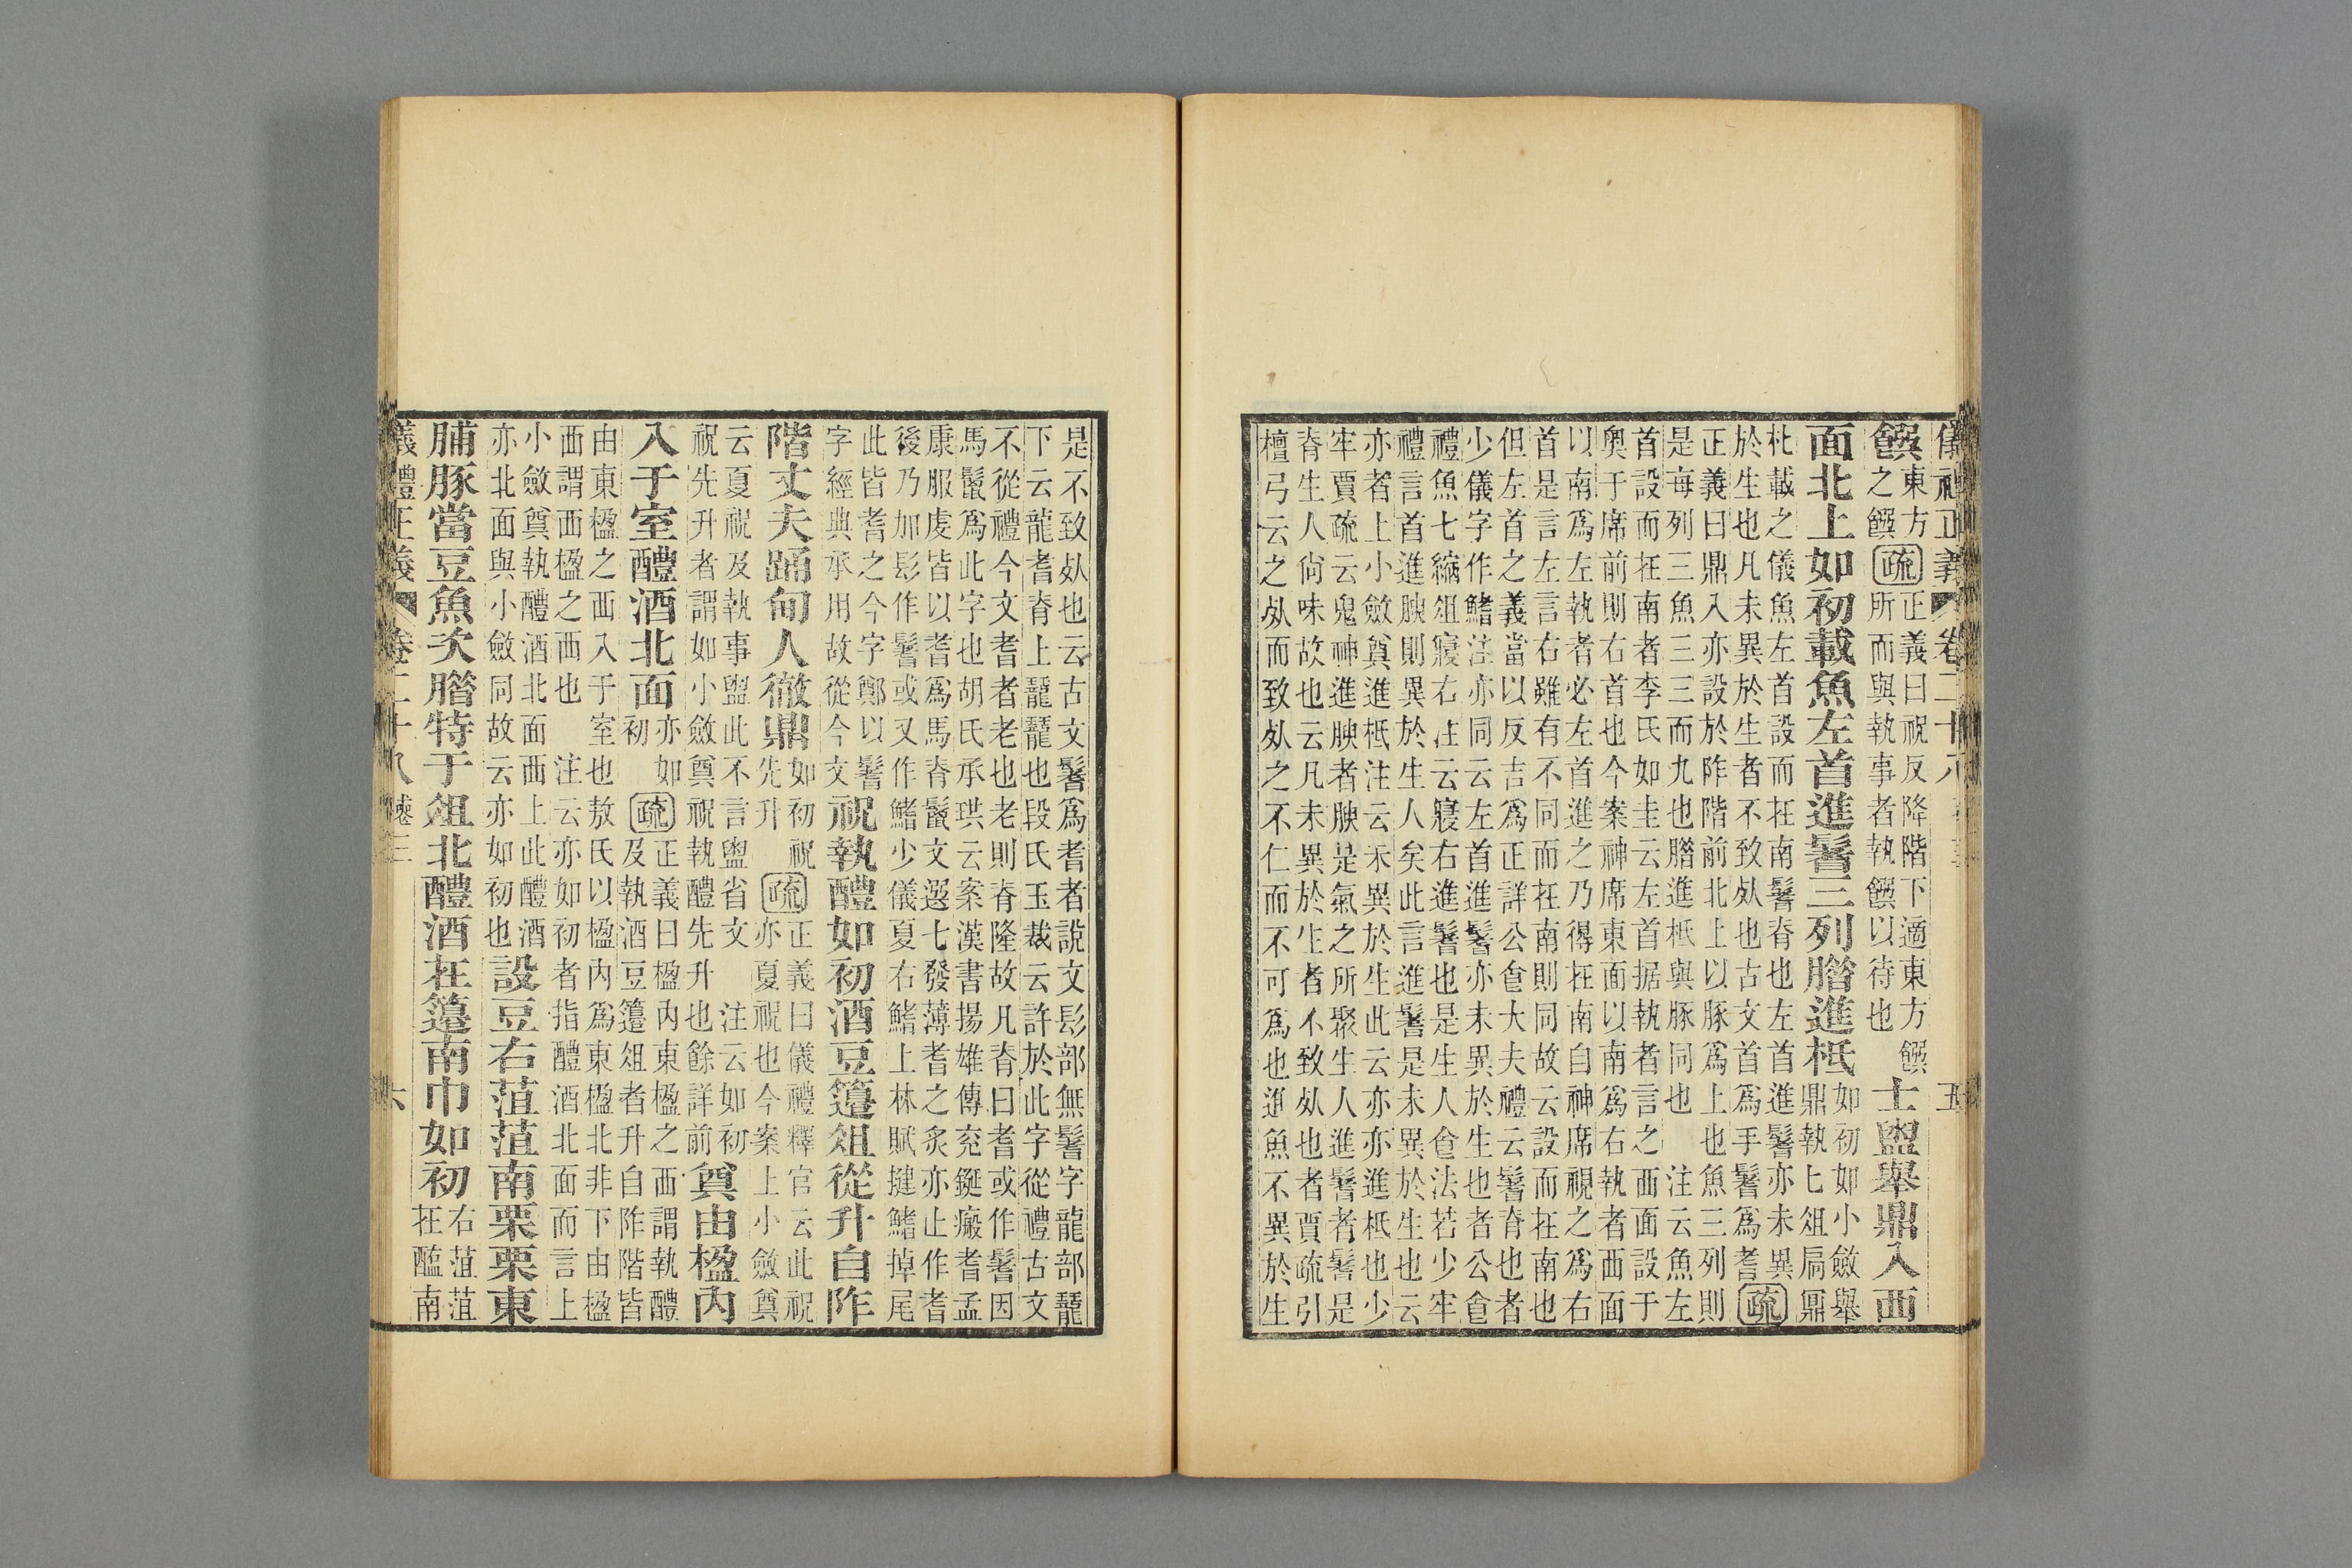 儀禮正義 卷二十八 五
饌東方
之饌
疏正義曰祝反降階下適東方饌
所而與執事者執饌以待也
士盥舉鼎入西
面北上如初載魚左首進鬐三列腊進柢如初如小斂舉
鼎執匕俎扃鼏
朼載之儀魚左首設而在南鬐脊也左首進鬐亦未異
於生也凡未異於生者不致死也古文首為手鬐為耆疏
正義曰鼎入亦設於阼階前北上以豚為上也魚三列則
是每列三魚三三而九也腊進柢與豚同也 注云魚左
首設而在南者李氏如圭云左首据執者言之西面設于
奧于席前則右首也今案神席東面以南為右執者西面
以南為左執者必左首進之乃得在南自神席視之為右
首是言左言右雖有不同而在南則同故云設而在南也
但左首之義當以反吉為正詳公食大夫禮云鬐脊也者
少儀字作鰭注亦同云左首進鬐亦未異於生也者公食
禮魚七縮俎寢右注云寢右進鬐也是生人食法若少牢
禮言首進腴則異於生人矣此言進鬐是未異於生也云
亦者上小斂奠進柢注云未異於生此云亦亦進柢也少
牢賈疏云鬼神進腴者腴是氣之所聚生人進鬐者鬐是
脊生人尚味故也云凡未異於生者不致死也者賈疏引
檀弓云之死而致死之不仁而不可為也進魚不異於生
是不致死也云古文鬐為耆者說文髟部無鬐字龍部𪚲
下云龍耆脊上𪚲𪚲也段氏玉裁云許於此字從禮古文
不從禮今文耆者老也老則脊隆故凡脊曰耆或作鬐因
馬鬣為此字也胡氏承珙云案漢書揚雄傳兖鋋瘢耆孟
康服虔皆以耆為馬脊鬣文選七發薄耆之炙亦止作耆
後乃加髟作鬐或又作鰭少儀夏右鰭上林賦揵鰭掉尾
此皆耆之今字鄭以鬐
字經典承用故從今文
祝執醴如初酒豆籩俎從升自阼
階丈夫踊甸人徹鼎如初祝
先升
疏正義曰儀禮釋官云此祝
亦夏祝也今案上小斂奠
云夏祝及執事盥此不言盥省文 注云如初
祝先升者謂如小斂奠祝執醴先升也餘詳前
奠由楹內
入于室醴酒北面亦如
初
疏正義曰楹內東楹之西謂執醴
及執酒豆籩俎者升自阼階皆
由東楹之西入于室也敖氏以楹內為東楹北非下由楹
西謂西楹之西也 注云亦如初者指醴酒北面而言上
小斂奠執醴酒北面西上此醴酒
亦北面與小斂同故云亦如初也
設豆右菹菹南栗栗東
脯豚當豆魚次腊特于俎北醴酒在籩南巾如初右菹菹
在醢南
儀禮正義 卷二十八 六